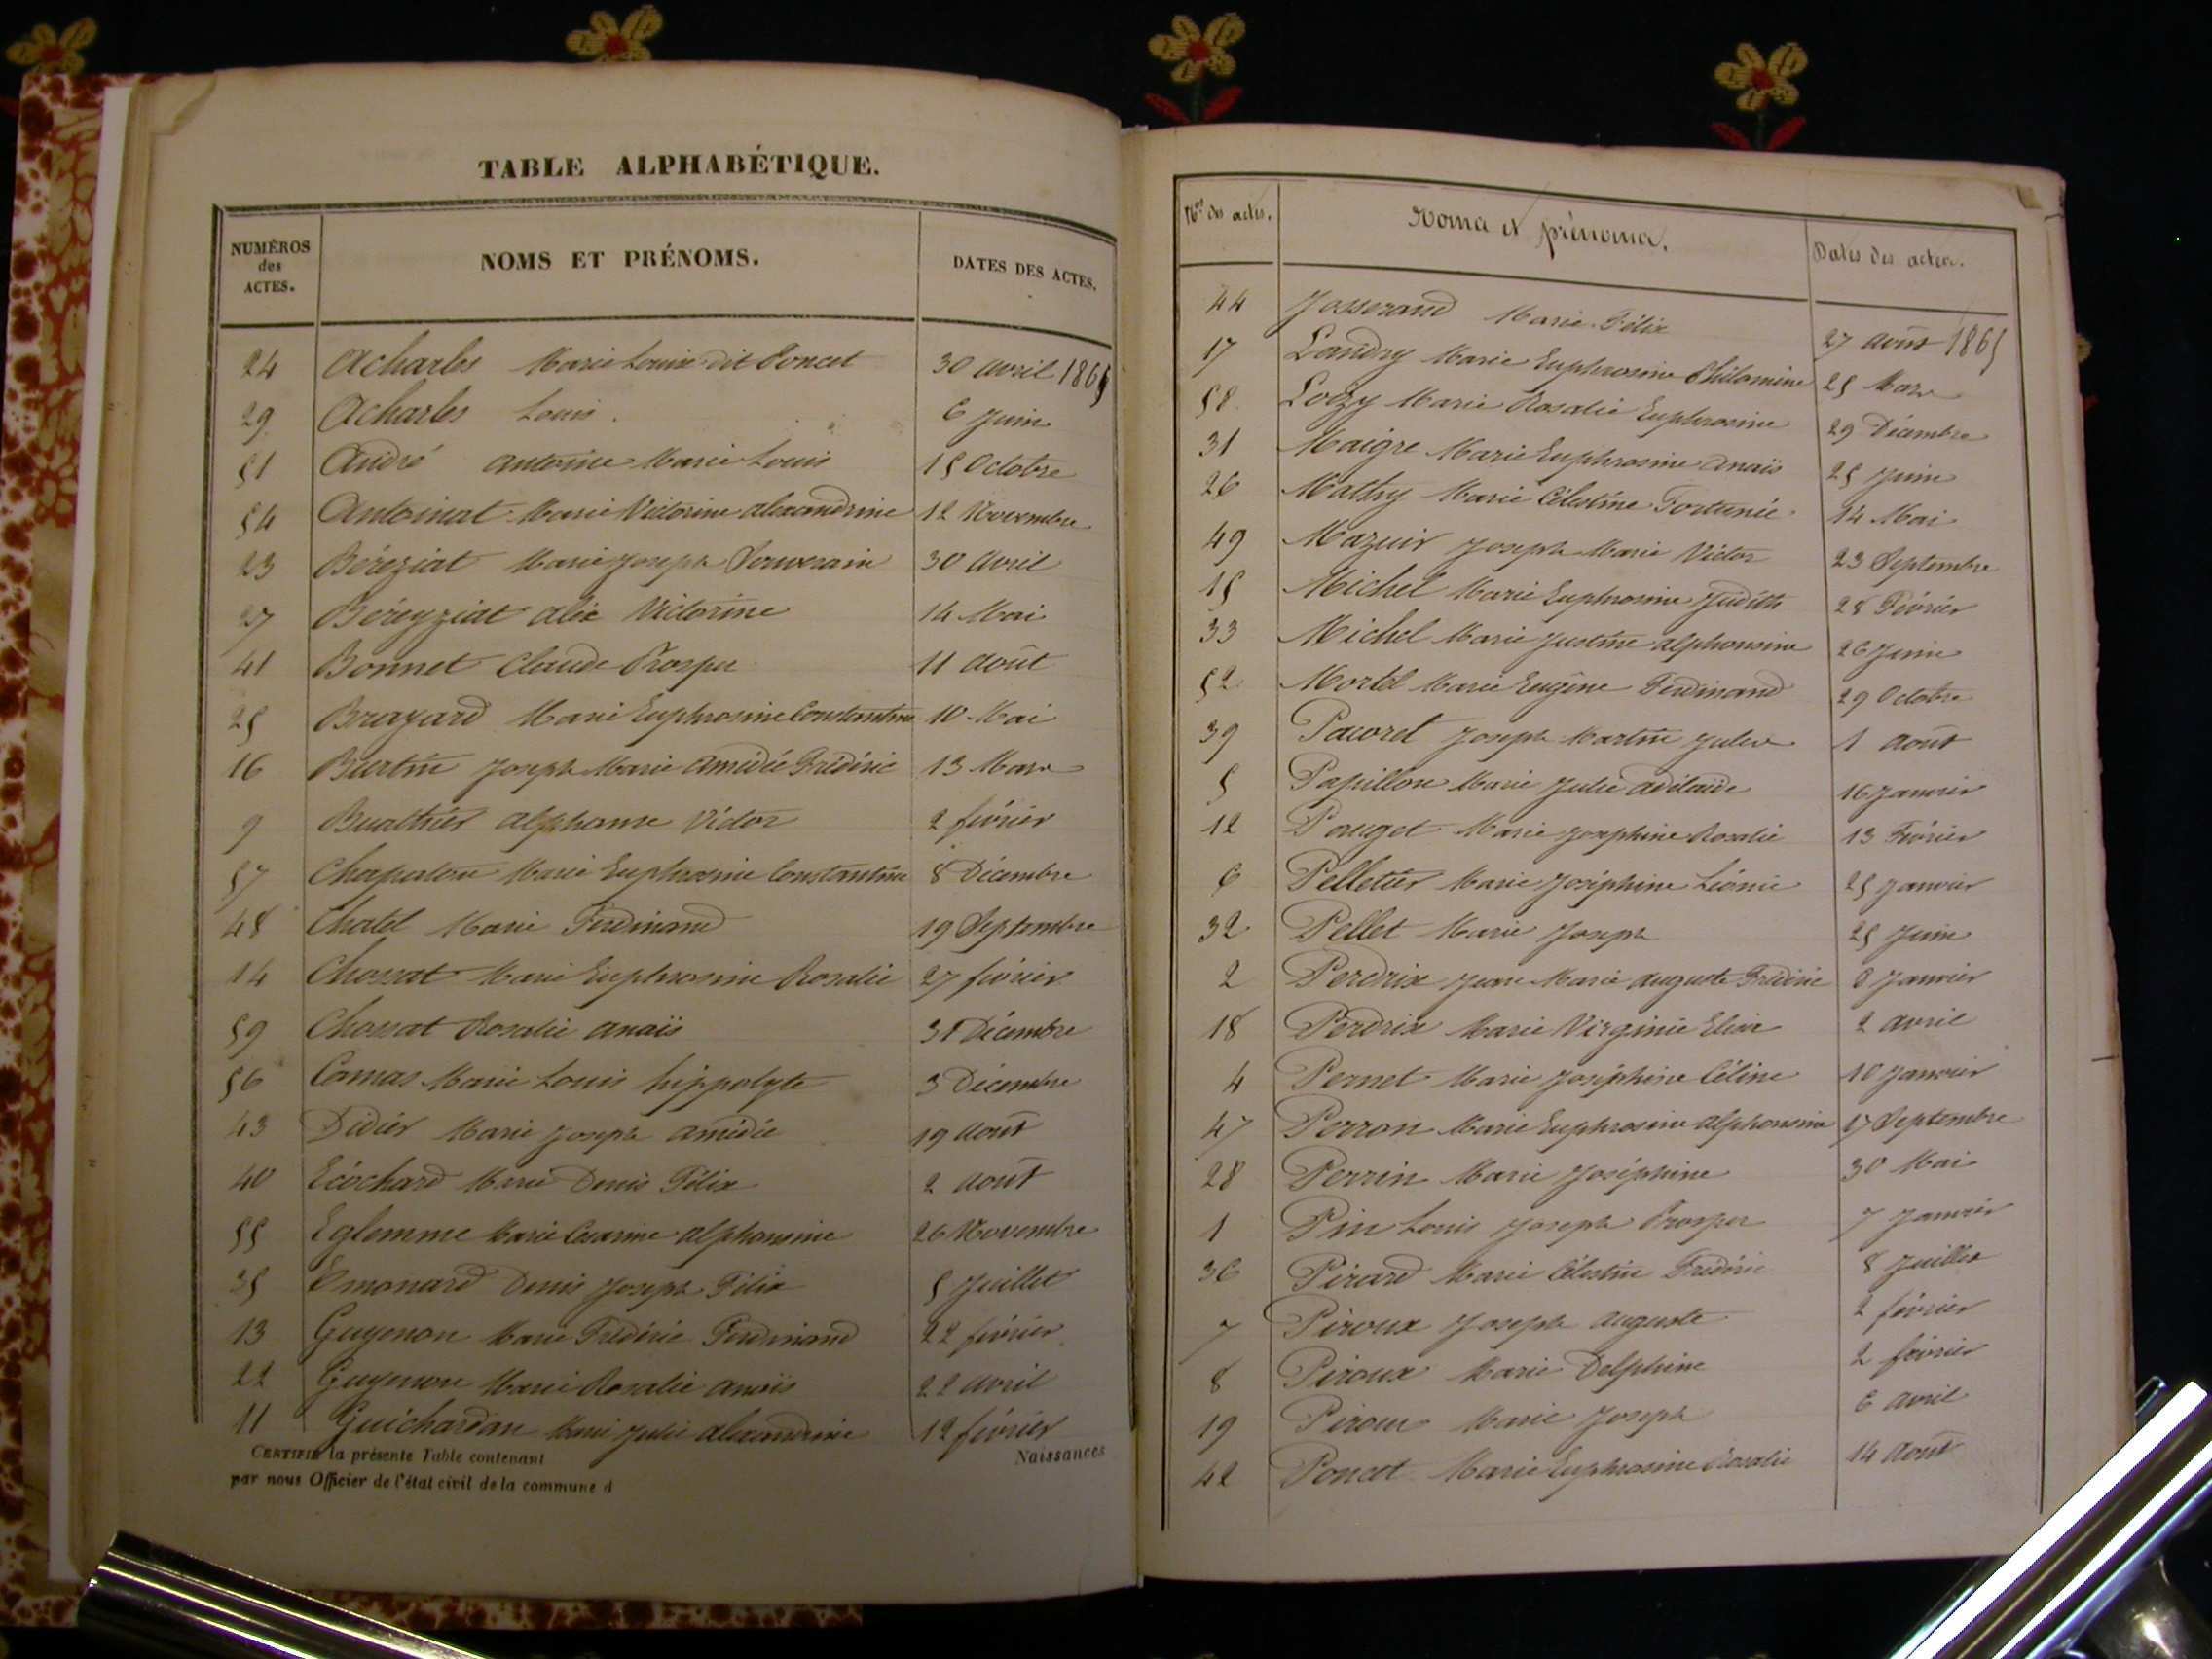 TABLE ALPHABÉTIQUE.
NUMÉROS des ACTES. NOMS ET PRÉNOMS. DATES DES ACTES.
24 Acharles Marie Louise dit Poncet 30 avril 1865
29 Acharles Louis. 6 Juin
51 André Antoine Marie Louis 15 Octobre
54 Antoinat Marie Victorine alexandrine 12 Novembre
23 Béréziat Marie Joseph Souverain 30 Avril
27 Béreyziat alix Victorine 14 Mai
41 Bonnet Claude Prosper 11 août
25 Brayard Marie Euphrosine Constantine 10 Mai
16 Burtin Joseph Marie Amédée Frédéric 13 Mars
9 Buathier alphonse Victor 2 février
57 Chapaton Marie Euphrosine Constantine 8 Décembre
48 Chatel Marie Ferdinand 19 Septembre
14 Chossat Marie Euphrosine Rosalie 27 février
59 Chossat Rosalie anaïs 31 Décembre
56 Comas Marie Louis hippolyte 3 Décembre
43 Didier Marie Joseph amédée 19 août
40 Ecochard Marie Denis Félix 2 août
55 Eglemme Marie alphonsine 26 Novembre
35 Emonard Denis Joseph Félix 5 Juillet
13 Guyenon Marie Frédéric Ferdinand 22 février
22 Guyenon Marie Rosalie anaïs 22 avril
11 Guichardan Marie Julie alexandrine 12 février
CERTIFIÉ la présente Table contenant Naissances
par nous Officier de l'état civil de la commune d
Nos des actes. Noms et prénoms. Dates des actes.
44 Josserand Marie Félix 27 août 1865
17 Landry Marie Euphrosine Philomène 25 Mars
58 Loizy Marie Rosalie Euphrosine 29 Décembre
31 Maigre Marie Euphrosine Anaïs 25 Juin
26 Mathy Marie Célestine Fortunée 14 Mai
49 Mazuir Joseph Marie Victor 23 Septembre
15 Michel Marie Euphrosine Judith 28 Février
33 Michel Marie Justine alphonsine 26 Juin
52 Mortel Marie Eugène Ferdinand 29 Octobre
39 Pacoret Joseph Martin Jules 1 août
5 Papillon Marie Julie adélaïde 16 Janvier
12 Pauget Marie Joséphine Rosalie 13 Février
6 Pelletier Marie Joséphine Léonie 25 Janvier
32 Pellet Marie Joseph 25 Juin
2 Perdrix Jean Marie auguste Frédéric 8 Janvier
18 Perdrix Marie Virginie Elisa 2 avril
4 Pernet Marie Joséphine Céline 10 Janvier
47 Perron Marie Euphrosine alphonsine 17 Septembre
28 Perrin Marie Joséphine 30 Mai
1 Pin Louis Joseph Prosper 7 Janvier
36 Pirard Marie Célestin Frédéric 8 Juillet
7 Piroux Joseph auguste 2 février
8 Piroux Marie Delphine 2 février
19 Piroux Marie Joseph 6 avril
42 Poncet Marie Euphrosine Rosalie 14 août